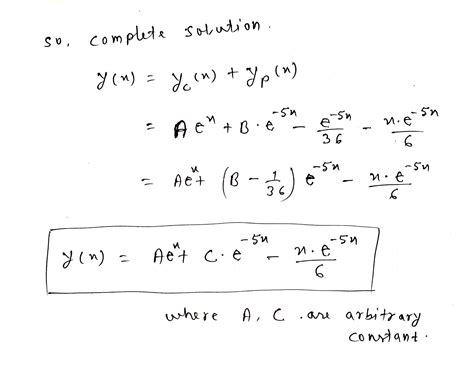 so, complete solution.
y(n) = y_c(n) + y_p(n)
= A e^n + B · e^{-5n} - e^{-5n}/36 - n·e^{-5n}/6
= Ae^n + (B - 1/36) e^{-5n} - n·e^{-5n}/6
y(n) = Ae^n + C · e^{-5n} - n·e^{-5n}/6
where A, C . are arbitrary
constant.